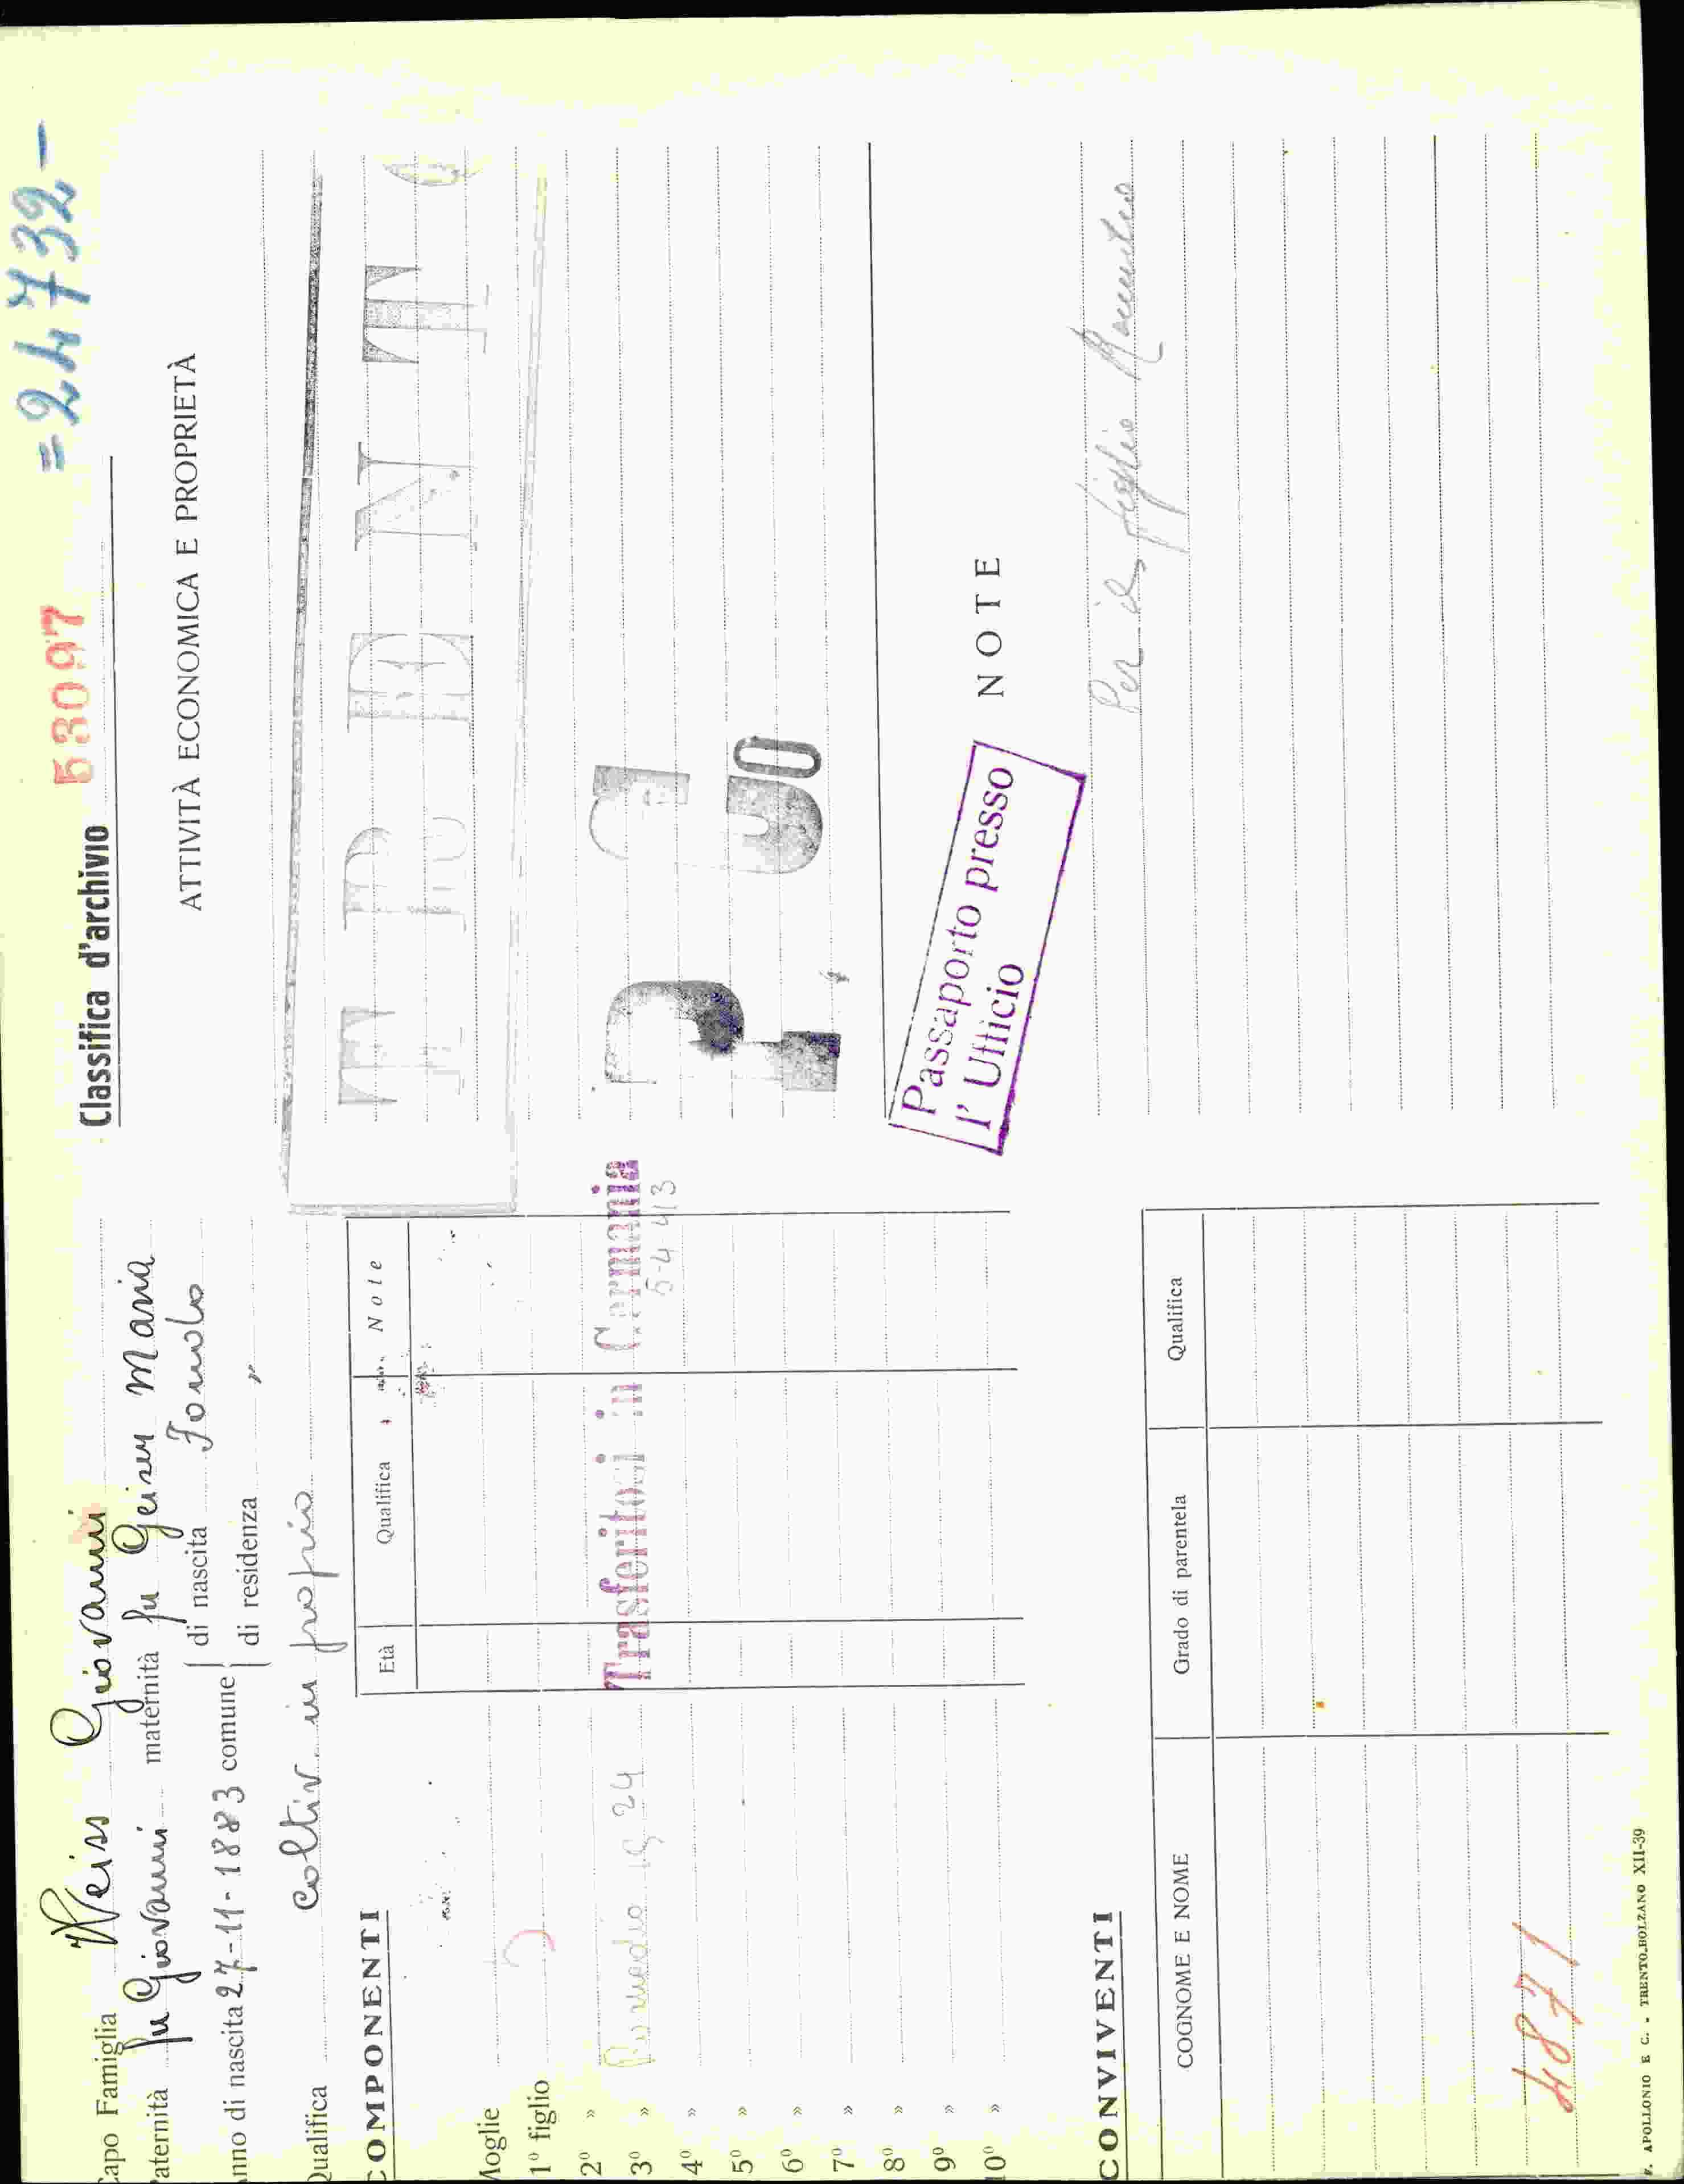 Capo Famiglia Weiss Giovanni
Paternità fu Giovanni maternità fu Geiser Maria
Anno di nascita 27-11-1883 comune di nascita
di residenza "
Qualifica coltiv. in proprio
COMPONENTI
Età Qualifica Note
Moglie
1º figlio
2º »
3º » Romedio 19 24
Trasferitosi in Germania
5-4-43
4º »
5º »
6º »
7º »
8º »
9º »
10º »
CONVIVENTI
COGNOME E NOME Grado di parentela Qualifica
4871
F. APOLLONIO E C. - TRENTO-BOLZANO XII-39
Classifica d'archivio 53097 =24732-
ATTIVITÀ ECONOMICA E PROPRIETÀ
TRENTO
Passaporto presso
l'Ufficio
NOTE
Per il figlio Romedio